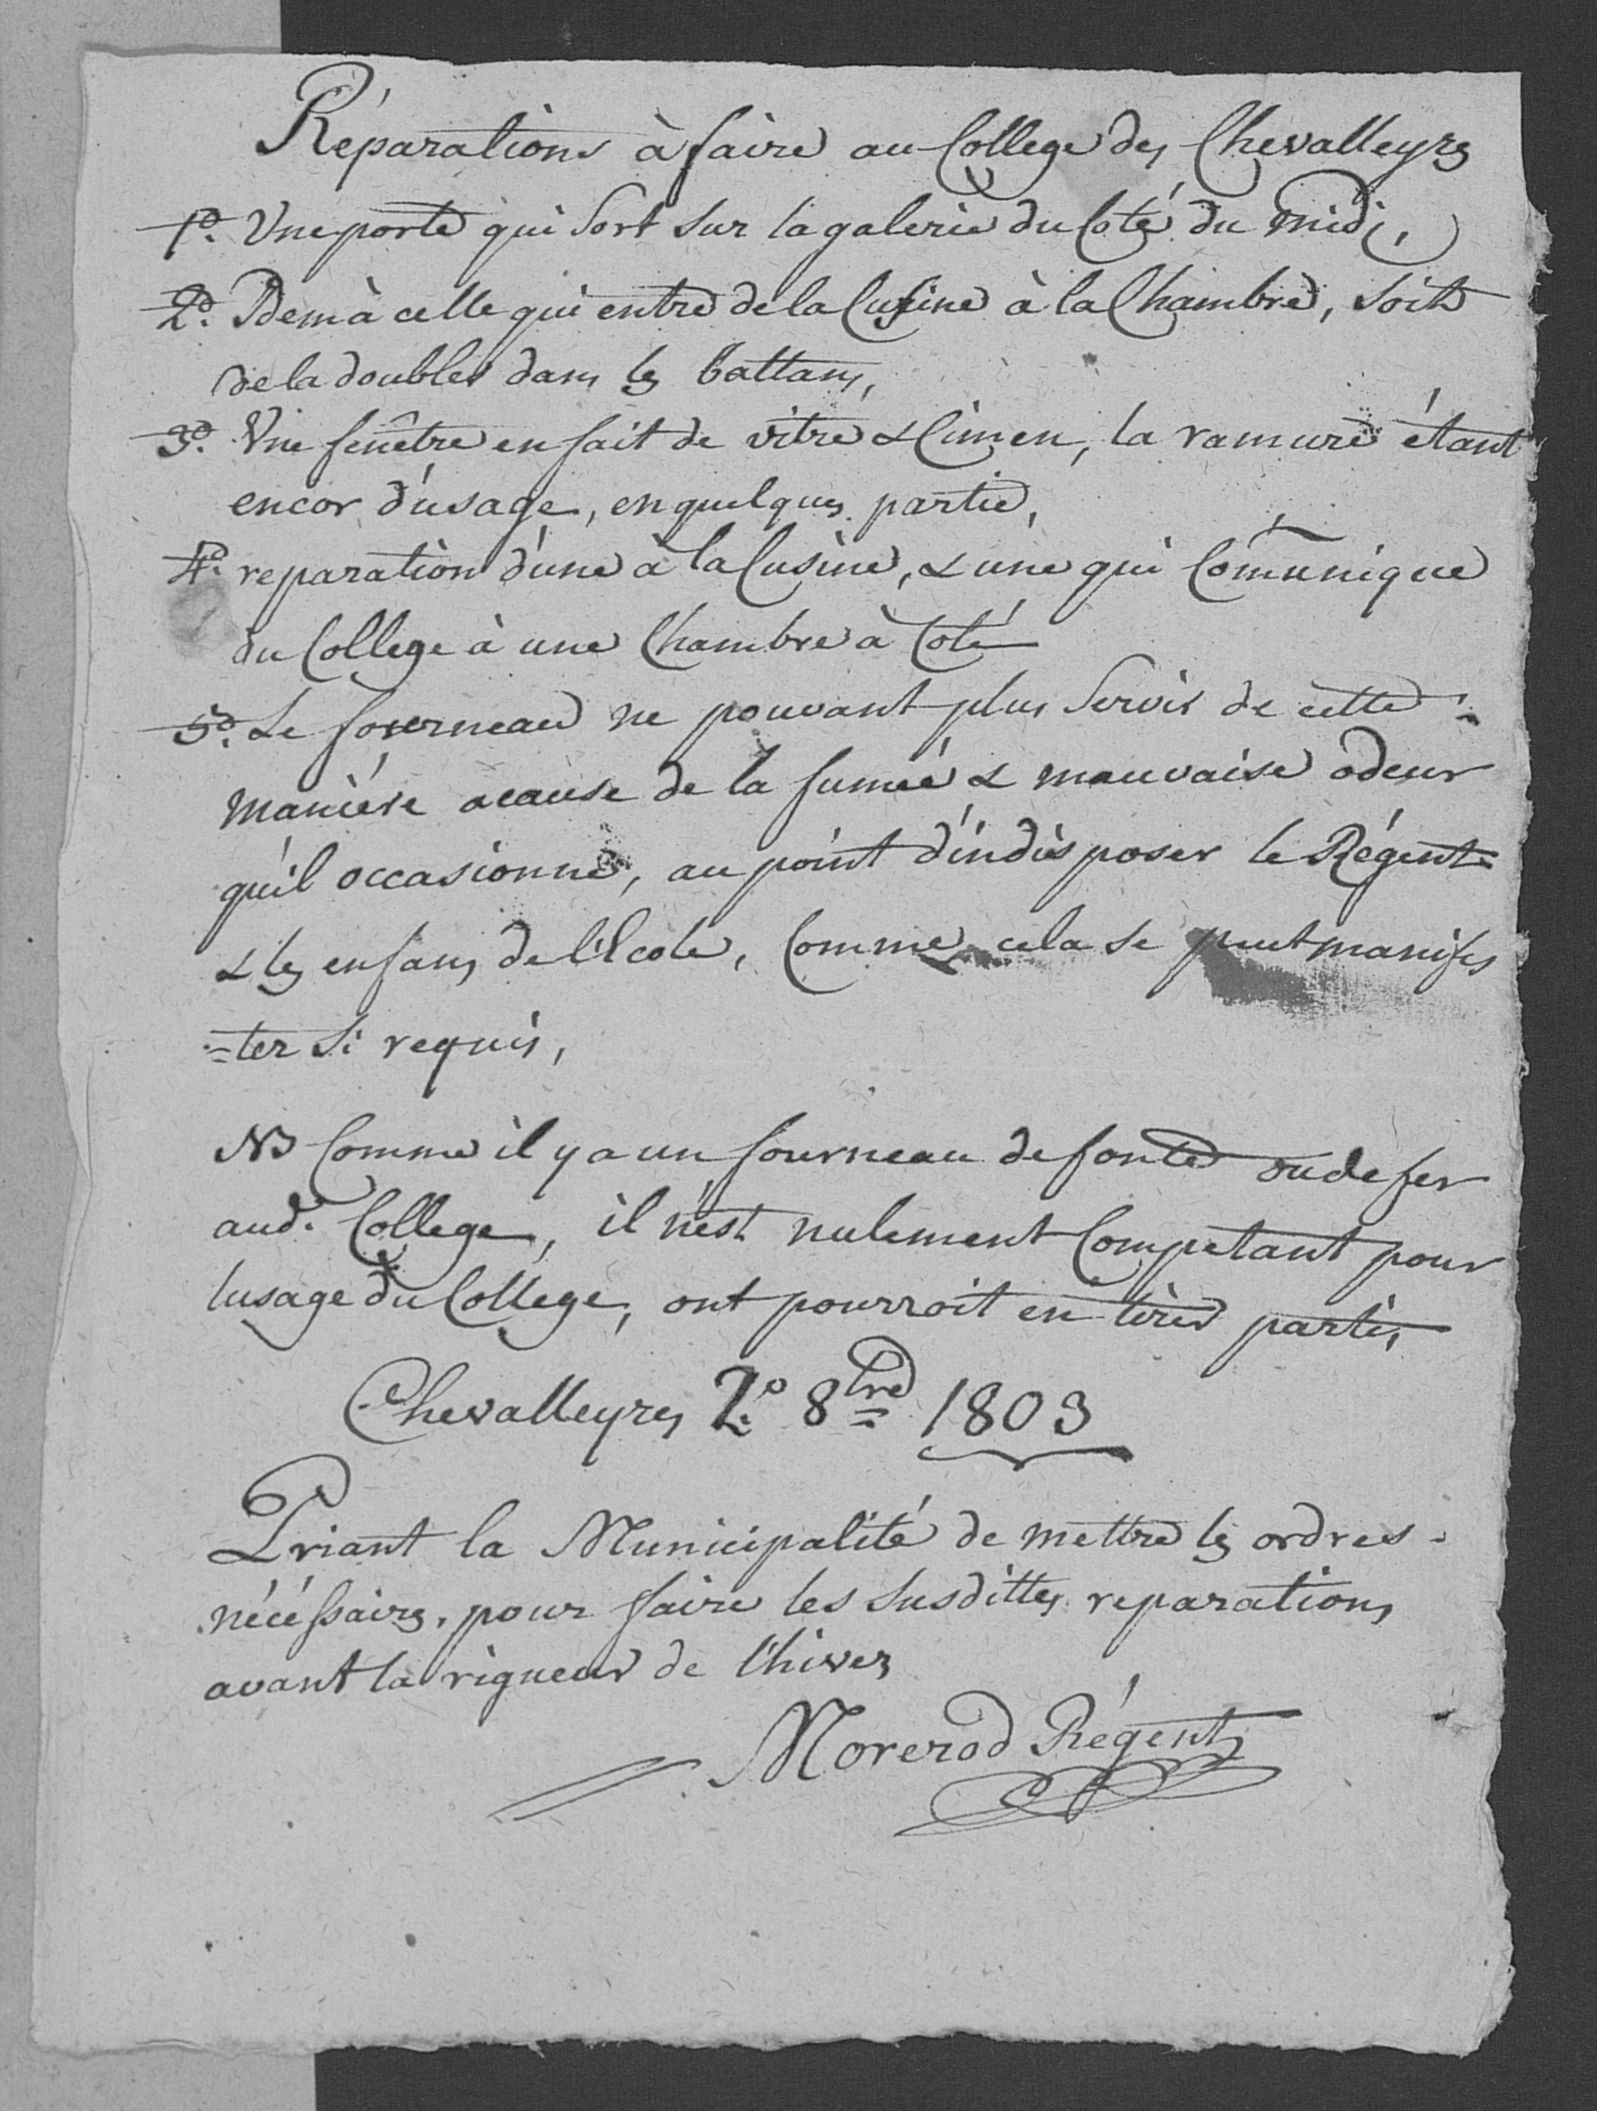 Réparations à faire au College des Chevalleyres
1.° Une porte qui sort sur la galerie du Coté du midi,
2.° Idem à celle qui entre de la Cusine à la Chambre, soit
de la doubler dans les battans,
3.° Une fenêtre en fait de vitre & Cimen, la ramure étant
encor d'usage, en quelques partie,
4.° reparation d'une à la Cusine, & une qui Com̃unique
du College à une Chambre à Coté
5.° Le fourneau ne pouvant plus servir de cette
manière acause de la fumée & mauvaise odeur
qu'il occasionne, au point d'indisposer le Régent
& les enfans de l'Ecole, Comme cela se peut manifes
=ter si requis,
NB Comme il y a un fourneau de fonte ou de fer
aud. College, il n'est nulement Competant pour
lusage du College, ont pourroit en tirer partis,
Chevalleyres 2.° 8bre 1803
Priant la Municipalité de mettre les ordres
nécéssaires, pour faire les susdittes reparations
avant la rigueur de l'hiver
Morerod Régent